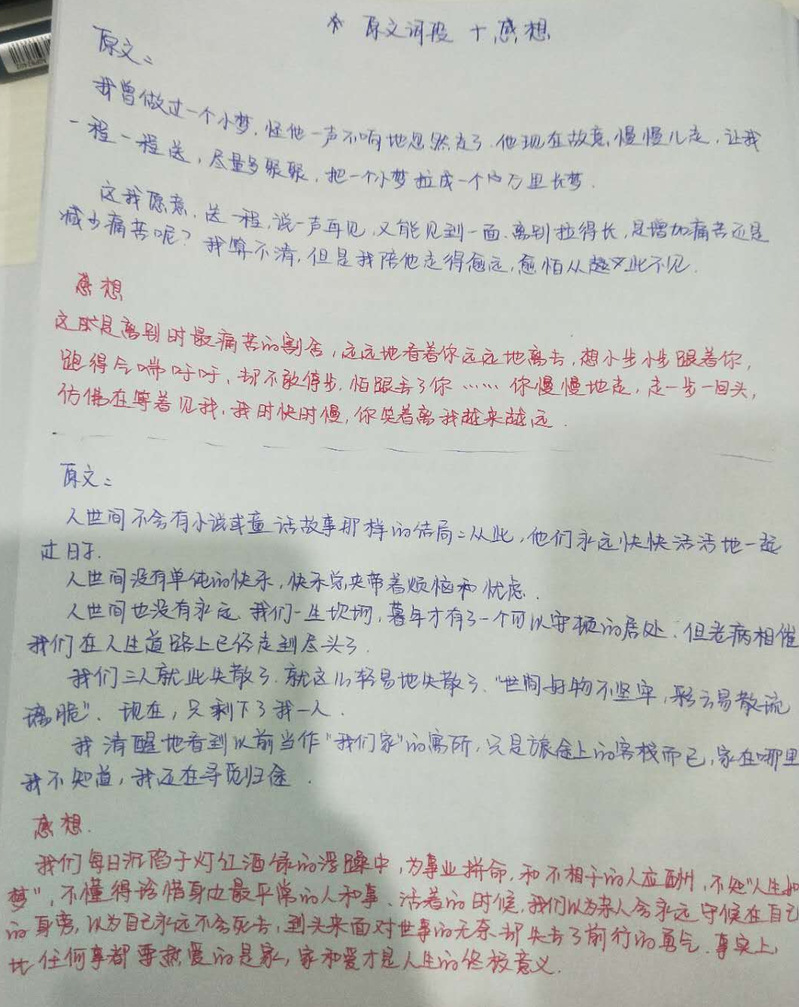 * 原文词段 + 感想
原文:
我曾做过一个小梦,怪他一声不响地忽然走了.他现在故意慢慢儿走,让我
一程一程送,尽量多聚聚,把一个小梦拉成一个万里长梦.
这我愿意.送一程,说一声再见,又能见到一面.离别拉得长,是增加痛苦还是
减少痛苦呢?我算不清,但是我陪他走得愈远,愈怕从此不见.
感想
这是离别时最痛苦的割舍,远远地看着你远远地离去,想小步小步跟着你,
跑得气喘吁吁,却不敢停步,怕跟丢了你……你慢慢地走,走一步一回头,
仿佛在等着见我,我时快时慢,你笑着离我越来越远.
原文:
人世间不会有小说或童话故事那样的结局:从此,他们永远快快活活地一起
过日子.
人世间没有单纯的快乐,快乐总夹带着烦恼和忧虑.
人世间也没有永远.我们一生坎坷,暮年才有了一个可以安顿的居处.但老病相催
我们在人生道路上已经走到尽头了.
我们三人就此失散了.就这么轻易地失散了."世间好物不坚牢,彩云易散琉
璃脆".现在,只剩下了我一人.
我清醒地看到以前当作"我们家"的寓所,只是旅途上的客栈而已,家在哪里
我不知道,我还在寻觅归途.
感想.
我们每日沉陷于灯红酒绿的浮躁中,为事业拼命,和不相干的人应酬,不知"人生如
梦",不懂得珍惜身边最平常的人和事.活着的时候,我们以为亲人会永远守候在自己
的身旁,以为自己永远不会死去,到头来面对世事的无奈却失去了前行的勇气.事实上,
比任何事都要热爱的是家,家和爱才是人生的终极意义.